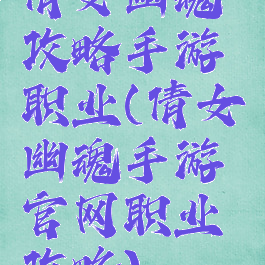 倩女幽魂
攻略手游
职业(倩女
幽魂手游
官网职业
攻略)